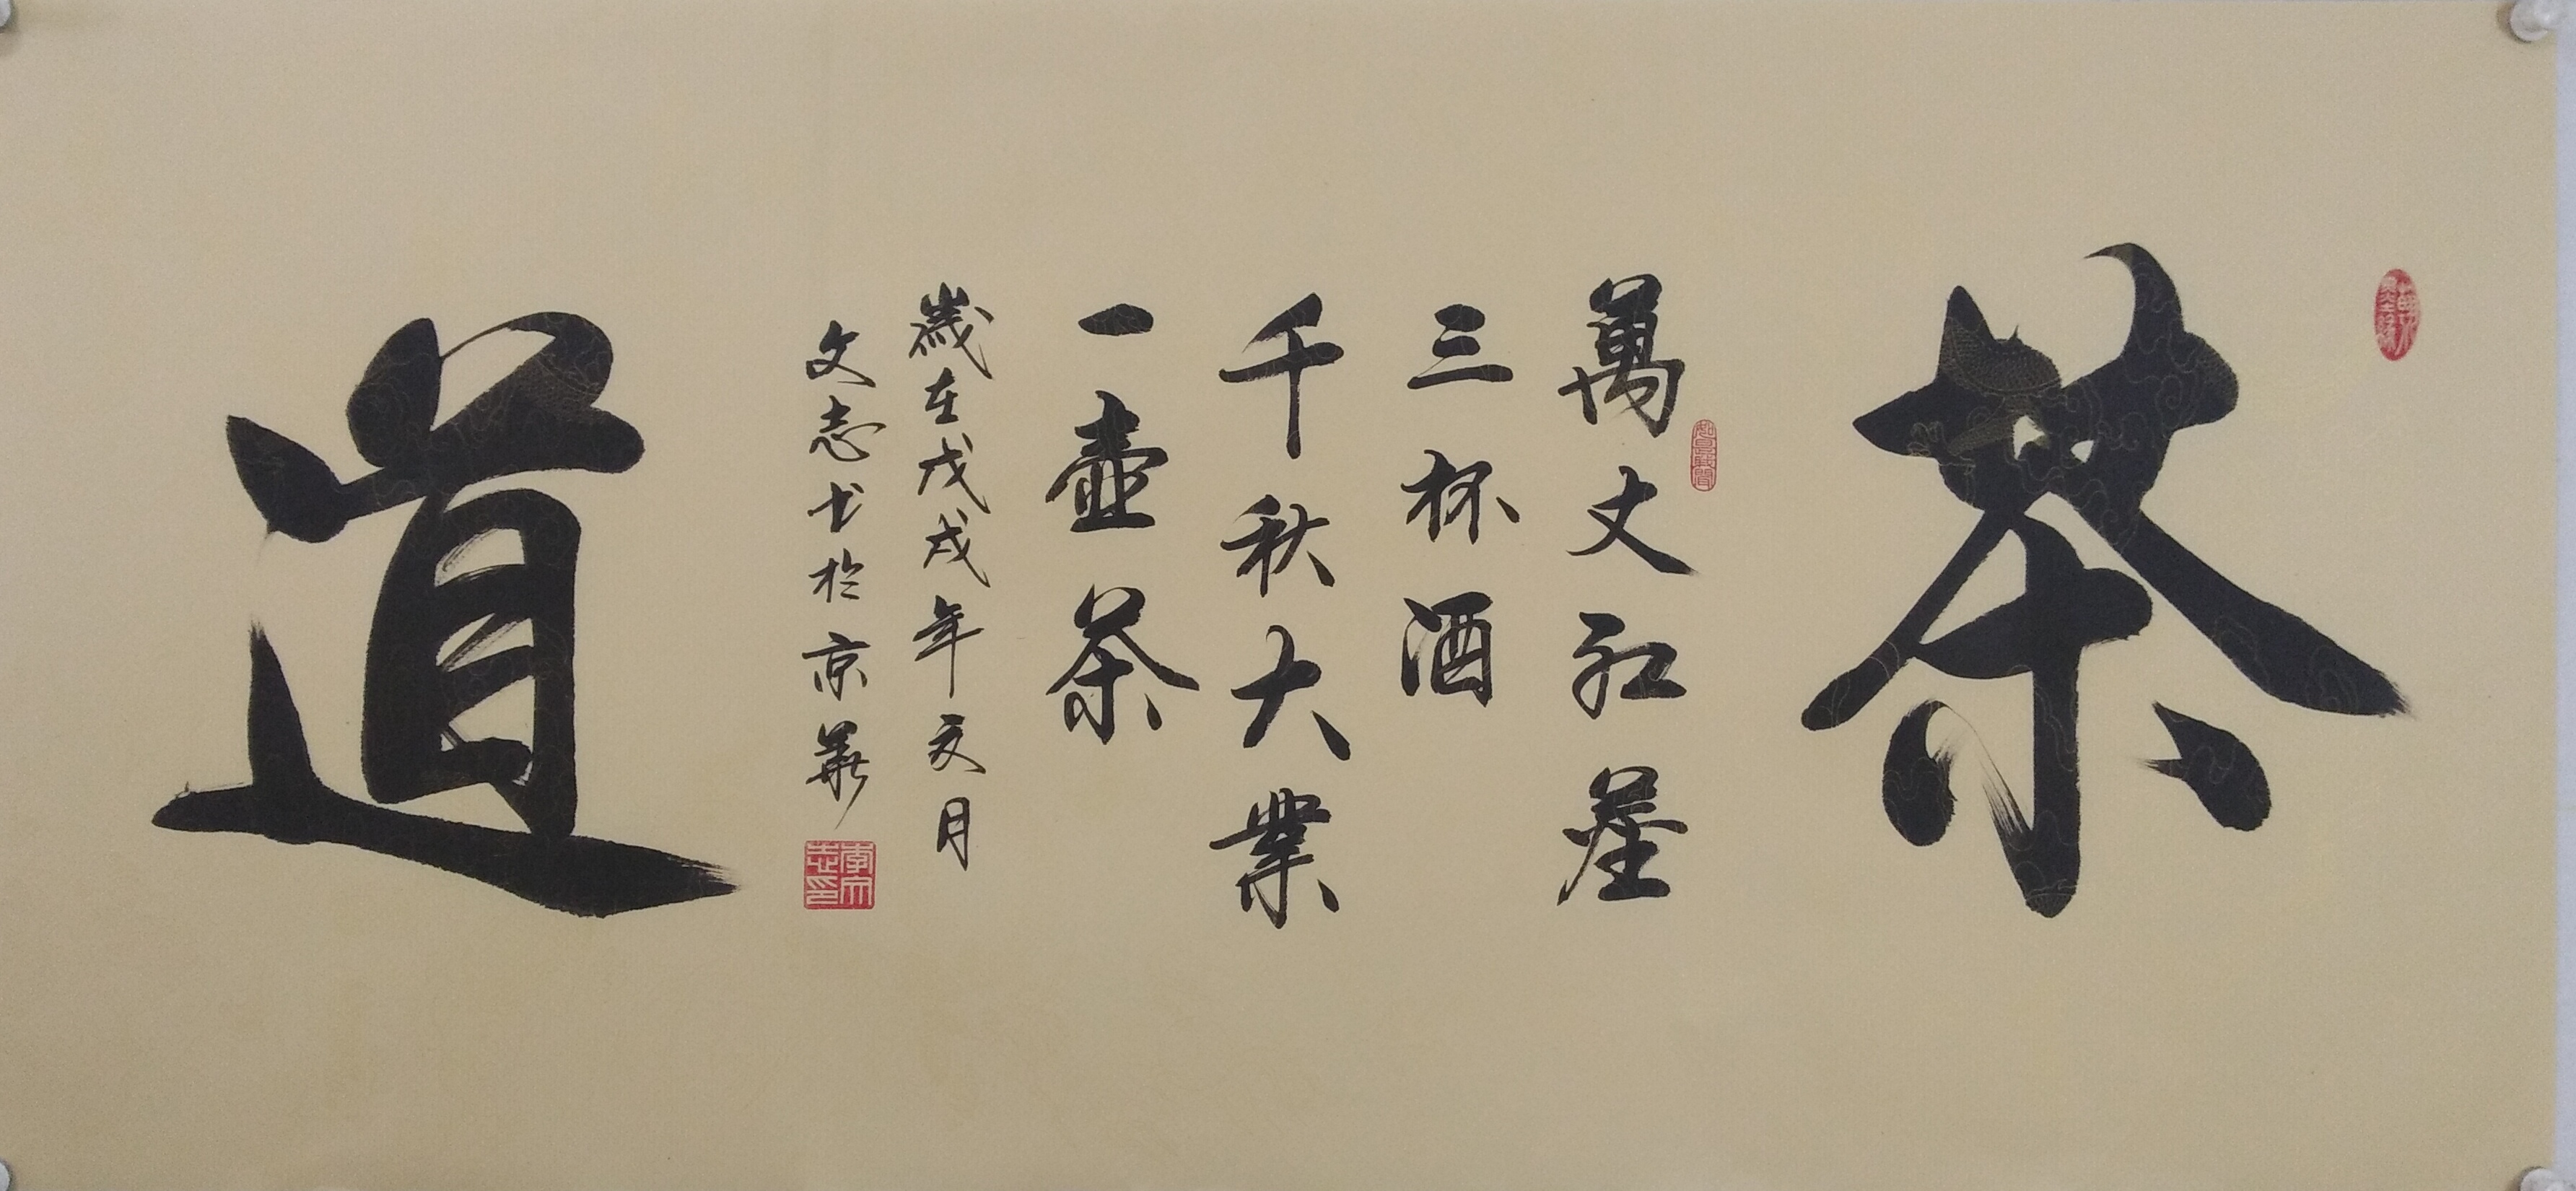 茶
萬丈紅塵
三杯酒
千秋大業
一壺茶
歲在戊戌年亥月
文志书於京華
李文志印
道